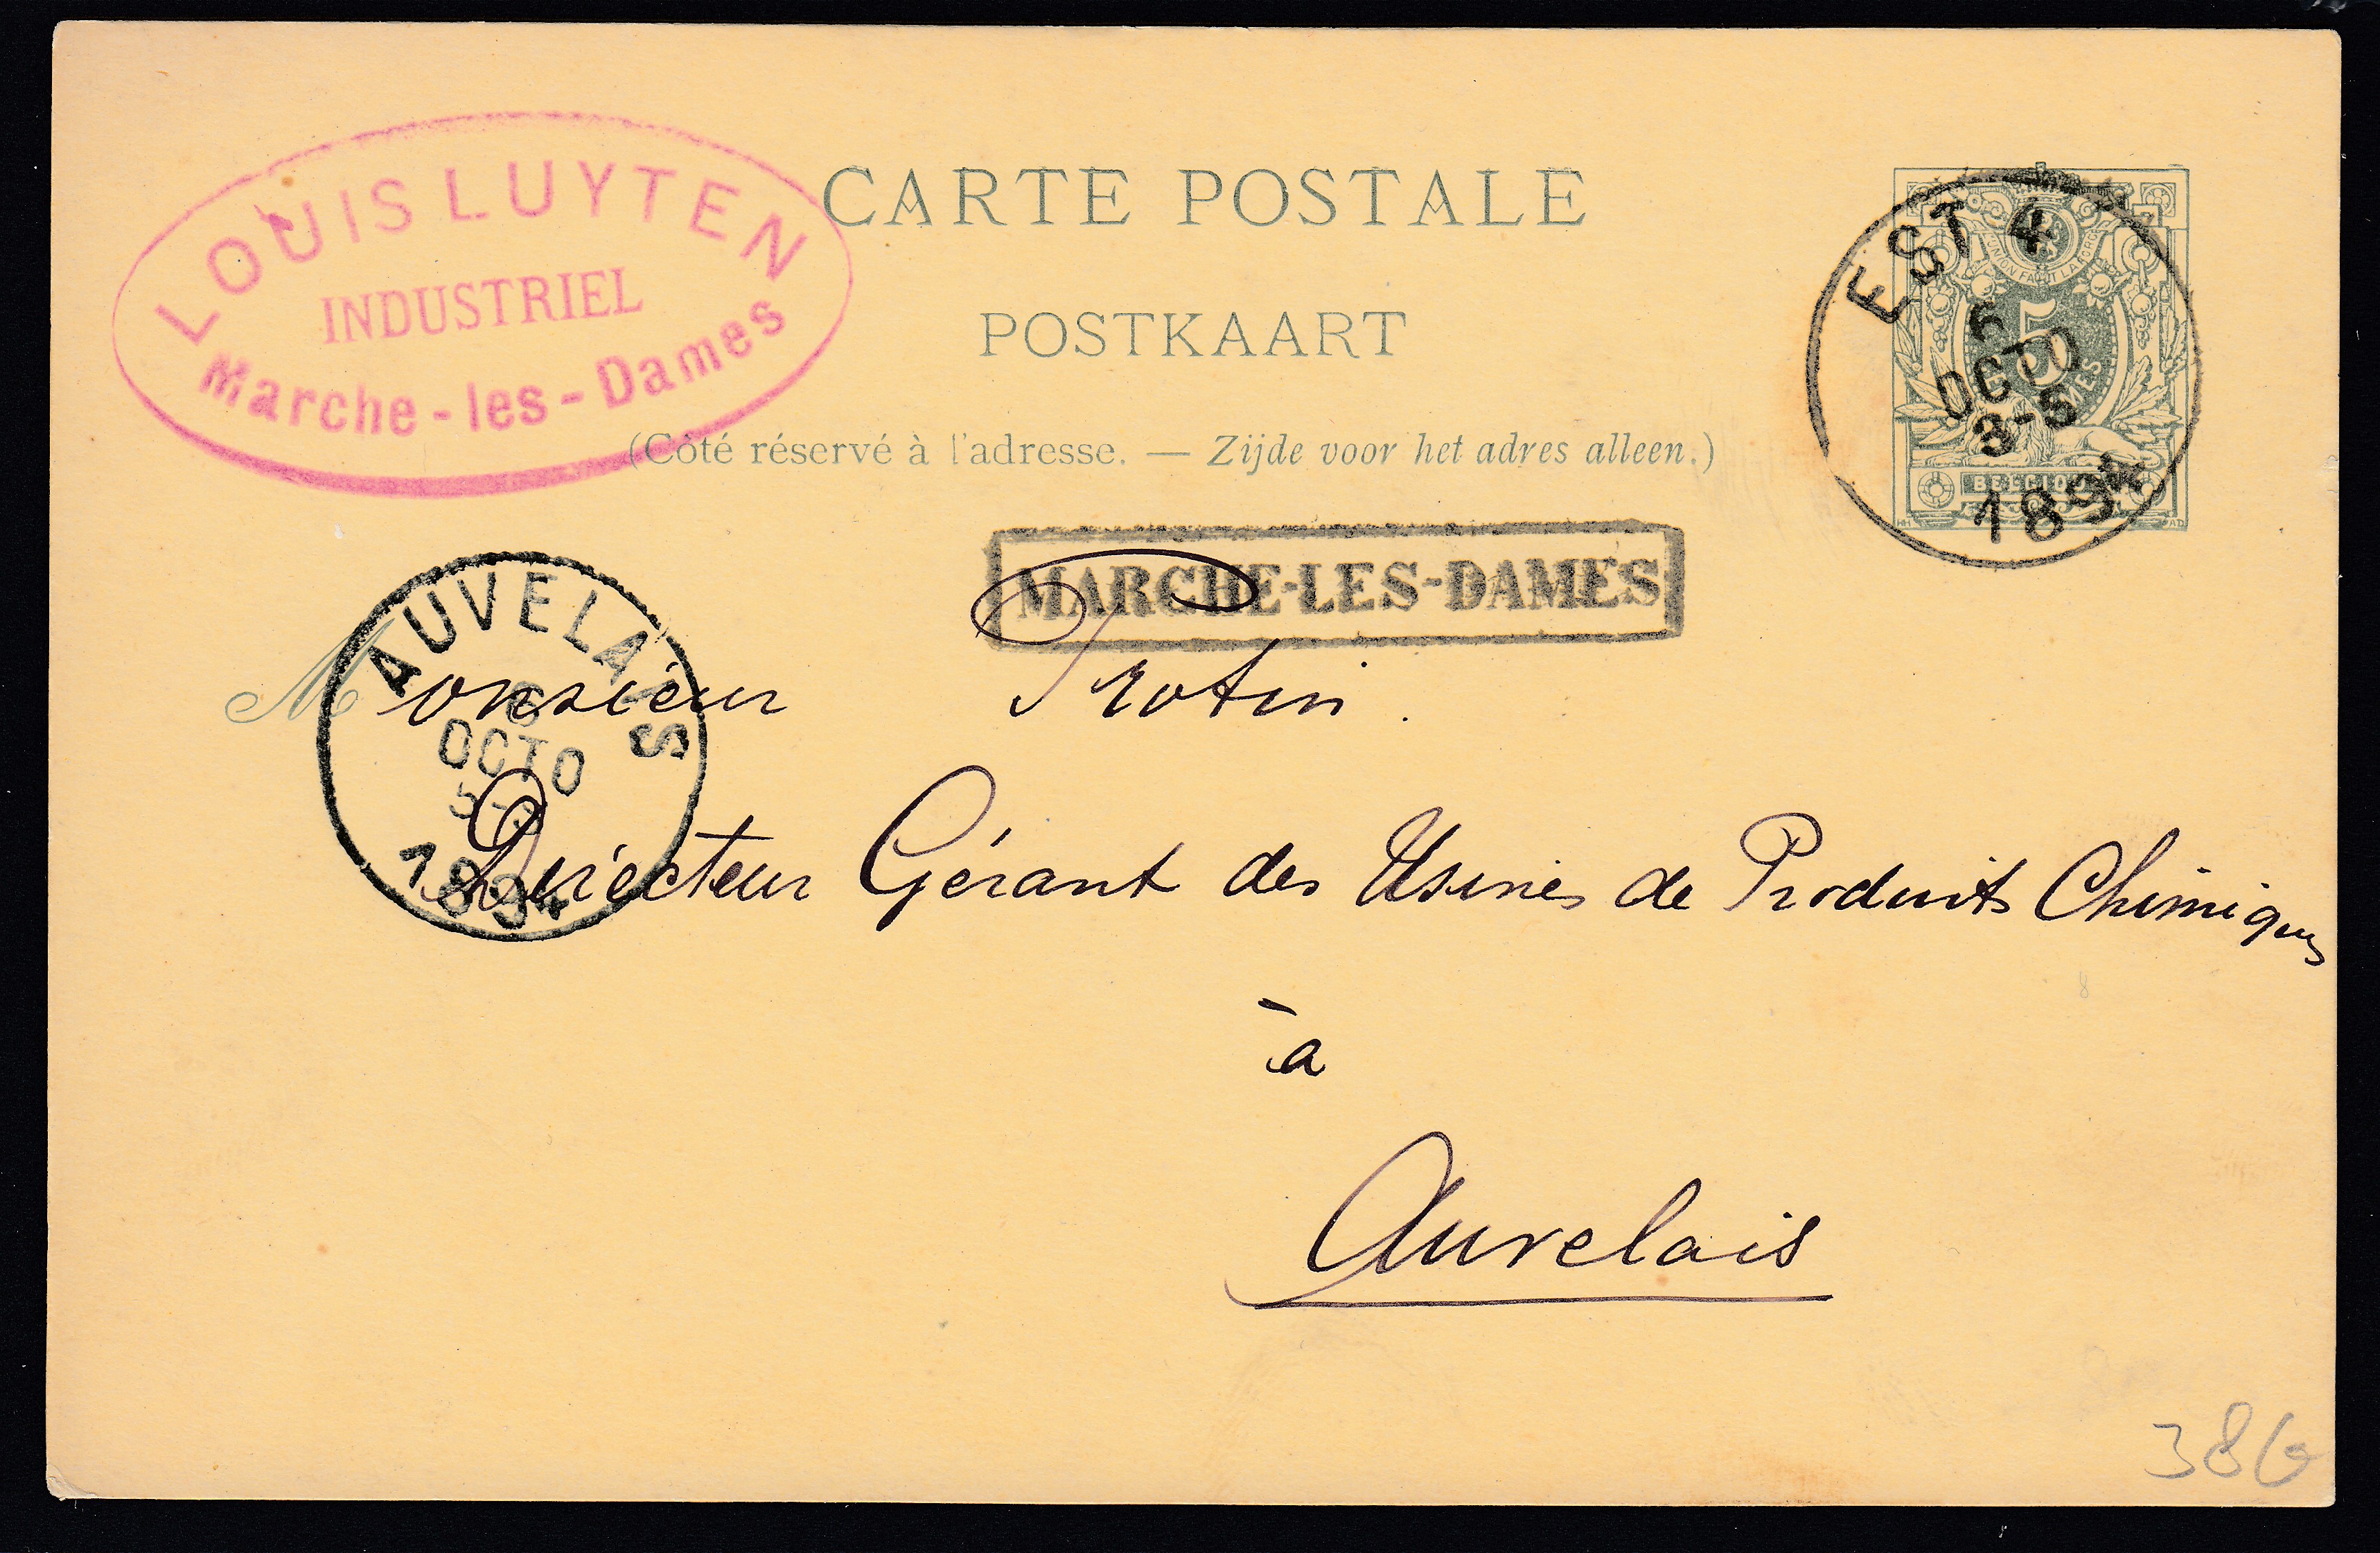 LOUIS LUYTEN
INDUSTRIEL
Marche-les-Dames
CARTE POSTALE
POSTKAART
(Côté réservé à l'adresse. — Zijde voor het adres alleen.)
EST 4
6
OCTO
3-5
1894
L'UNION FAIT LA FORCE
5
BELGIQUE
MARCHE-LES-DAMES
AUVELAIS
6
OCTO
1894
Monsieur Trotin.
Directeur Gérant des Usines de Produits Chimiques
à
Auvelais
386